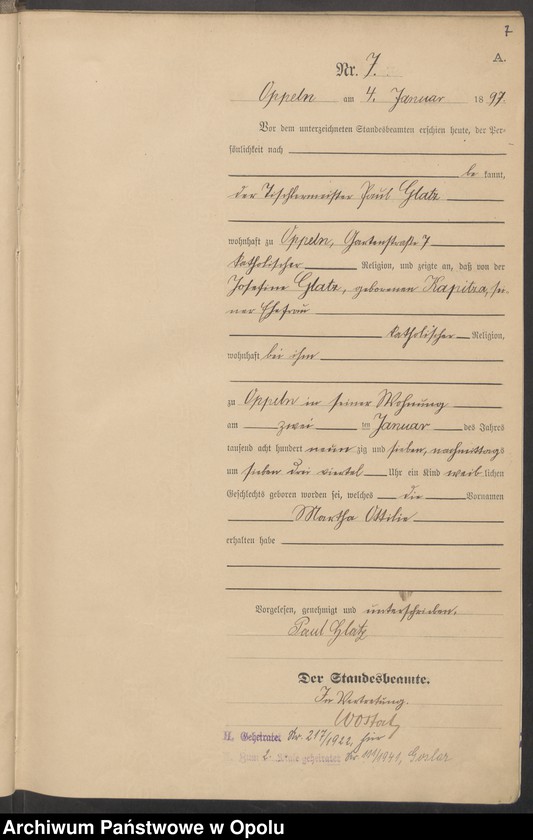 7
A.
Nr. 7.
Oppeln am 4. Januar 1897.
Vor dem unterzeichneten Standesbeamten erschien heute, der Per-
sönlichkeit nach
be kannt,
der Tischlermeister Paul Glatz
wohnhaft zu Oppeln, Gartenstraße 7
katholischer Religion, und zeigte an, daß von der
Josefine Glatz, geborenen Kapitza, sei-
ner Ehefrau
katholischer Religion,
wohnhaft bei ihm
zu Oppeln in seiner Wohnung
am zwei ten Januar des Jahres
tausend acht hundert neun zig und sieben, nachmittags
um sieben drei viertel Uhr ein Kind weib lichen
Geschlechts geboren worden sei, welches die Vornamen
Martha Ottilie
erhalten habe
Vorgelesen, genehmigt und unterschrieben.
Paul Glatz
Der Standesbeamte.
In Vertretung.
H. Geheiratet Nr. 217/1922, hier
2. Male geheiratet Nr. 191/1941, Goslar
Archiwum Państwowe w Opolu